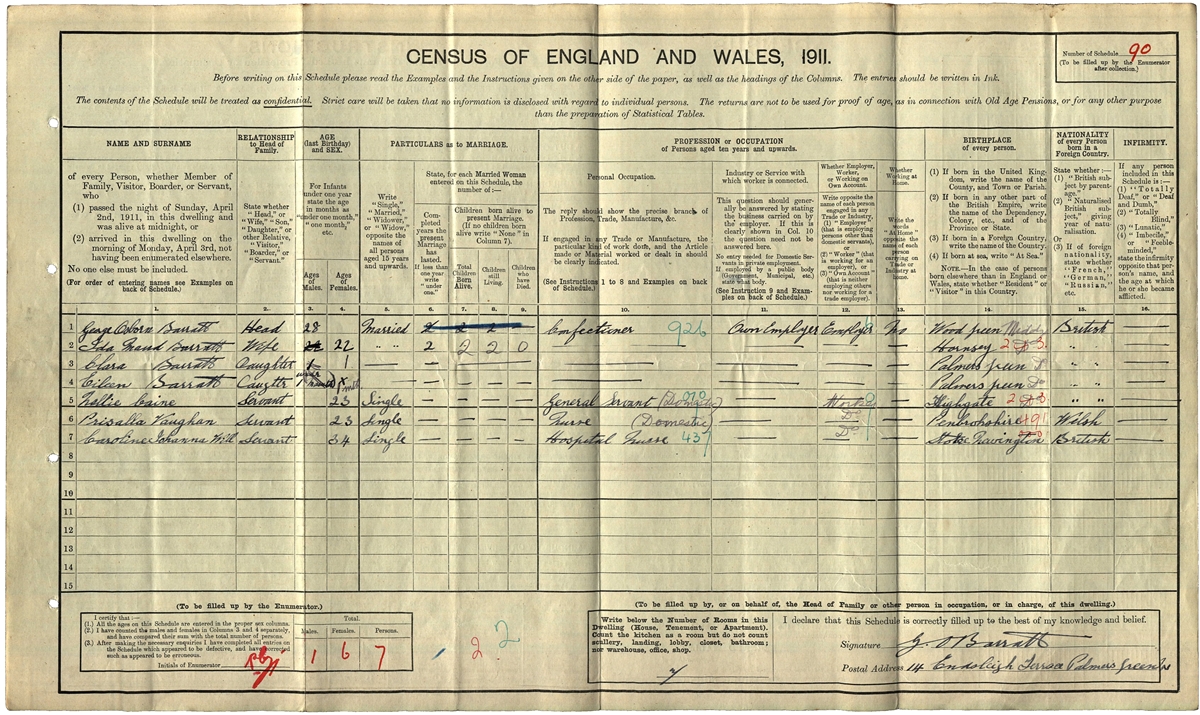 CENSUS OF ENGLAND AND WALES, 1911.
Number of Schedule 90
(To be filled up by the Enumerator
after collection.)
Before writing on this Schedule please read the Examples and the Instructions given on the other side of the paper, as well as the headings of the Columns. The entries should be written in Ink.
The contents of the Schedule will be treated as confidential. Strict care will be taken that no information is disclosed with regard to individual persons. The returns are not to be used for proof of age, as in connection with Old Age Pensions, or for any other purpose
than the preparation of Statistical Tables.
NAME AND SURNAME
of every Person, whether Member of
Family, Visitor, Boarder, or Servant,
who
(1) passed the night of Sunday, April
2nd, 1911, in this dwelling and
was alive at midnight, or
(2) arrived in this dwelling on the
morning of Monday, April 3rd, not
having been enumerated elsewhere.
No one else must be included.
(For order of entering names see Examples
on back of Schedule.)
RELATIONSHIP
to Head of
Family.
State whether
"Head," or
"Wife," "Son,"
"Daughter," or
other Relative,
"Visitor,"
"Boarder," or
"Servant."
AGE
(last Birthday)
and SEX.
For Infants
under one year
state the age
in months as
"under one
month," "one
month,"
etc.
Ages
of
Males.
Ages
of
Females.
PARTICULARS as to MARRIAGE.
Write
"Single,"
"Married,"
"Widower,"
or "Widow,"
opposite the
names of
all persons
aged 15 years
and upwards.
State, for each Married Woman
entered on this Schedule, the
number of:—
Completed
years the
present
Marriage
has
lasted.
If less than
one year
write
"under
one."
Children born alive to
present Marriage.
(If no children born
alive write "None" in
Column 7).
Total
Children
Born
Alive.
Children
still
Living.
Children
who
have
Died.
PROFESSION or OCCUPATION
of Persons aged ten years and upwards.
Personal Occupation.
The reply should show the precise branch of
Profession, Trade, Manufacture, &c.
If engaged in any Trade or Manufacture, the
particular kind of work done, and the Article
made or Material worked or dealt in should
be clearly indicated.
(See Instructions 1 to 8 and Examples on back
of Schedule.)
Industry or Service with
which worker is connected.
This question should generally
be answered by stating
the business carried on by
the employer. If this is
clearly shown in Col. 10
the question need not be
answered here.
No entry needed for Domestic Servants
in private employment.
If employed by a public body
(Government, Municipal, etc.)
state what body.
(See Instruction 9 and Examples
on back of Schedule.)
Whether Employer,
Worker,
or Working on
Own Account.
Write opposite the
name of each person
engaged in any
Trade or Industry,
(1) "Employer"
(that is employing
persons other than
domestic servants),
or
(2) "Worker" (that
is working for an
employer), or
(3) "Own Account"
(that is neither
employing others
nor working for a
trade employer).
Whether
Working at
Home.
Write the
words
"At Home"
opposite the
name of each
person
carrying on
Trade or
Industry at
home.
BIRTHPLACE
of every person.
(1) If born in the United Kingdom,
write the name of the
County, and Town or Parish.
(2) If born in any other part of
the British Empire, write
the name of the Dependency,
Colony, etc., and of the
Province or State.
(3) If born in a Foreign Country,
write the name of the Country.
(4) If born at sea, write "At Sea."
NOTE.—In the case of persons
born elsewhere than in England or
Wales, state whether "Resident" or
"Visitor" in this Country.
NATIONALITY
of every Person
born in a
Foreign Country.
State whether :—
(1) "British
subject by
parentage."
(2) "Naturalised
British subject,"
giving
year of naturalisation.
Or
(3) If of foreign
nationality,
state whether
"French,"
"German,"
"Russian,"
etc.
INFIRMITY.
If any person
included in this
Schedule is :—
(1) "Totally
Deaf," or "Deaf
and Dumb,"
(2) "Totally
Blind,"
(3) "Lunatic,"
(4) "Imbecile,"
or "Feeble-minded,"
state the infirmity
opposite that person's
name, and
the age at which
he or she became
afflicted.
1. 2. 3. 4. 5. 6. 7. 8. 9. 10. 11. 12. 13. 14. 15. 16.
1 George Osborn Barratt Head 28 Married 2 2 2 — Confectioner 926 Own Employer Employer No Wood Green Middx British —
2 Ida Maud Barratt Wife 22 " " 2 2 2 0 — — — — Hornsey " " —
3 Clara Barratt Daughter 1 — — — — — — — — Palmers Green Do " " —
4 Eileen Barratt Daughtr under 1 month — — — — — — — — Palmers Green Do " " —
5 Nellie Caine Servant 23 Single — — — — General Servant (Domestic) — Worker — Highgate " " —
6 Prisalla Vaughan Servant 23 Single — — — — Nurse (Domestic) — Do — Penbrokshire 491 Welsh —
7 Caroline Johanna Will Servant 34 Single — — — — Hospital Nurse 437 — Do — Stoke Newington British —
8
9
10
11
12
13
14
15
(To be filled up by the Enumerator.)
I certify that :—
(1.) All the ages on this Schedule are entered in the proper sex columns.
(2.) I have counted the males and females in Columns 3 and 4 separately,
and have compared their sum with the total number of persons.
(3.) After making the necessary enquiries I have completed all entries on
the Schedule which appeared to be defective, and have corrected
such as appeared to be erroneous.
Initials of Enumerator
Total.
Males. Females. Persons.
1 6 7
2 2
(To be filled up by, or on behalf of, the Head of Family or other person in occupation, or in charge, of this dwelling.)
Write below the Number of Rooms in this
Dwelling (House, Tenement, or Apartment).
Count the kitchen as a room but do not count
scullery, landing, lobby, closet, bathroom;
nor warehouse, office, shop.
7
I declare that this Schedule is correctly filled up to the best of my knowledge and belief.
Signature G. O Barratt
Postal Address 14 Endsleigh Terrace Palmers Green N